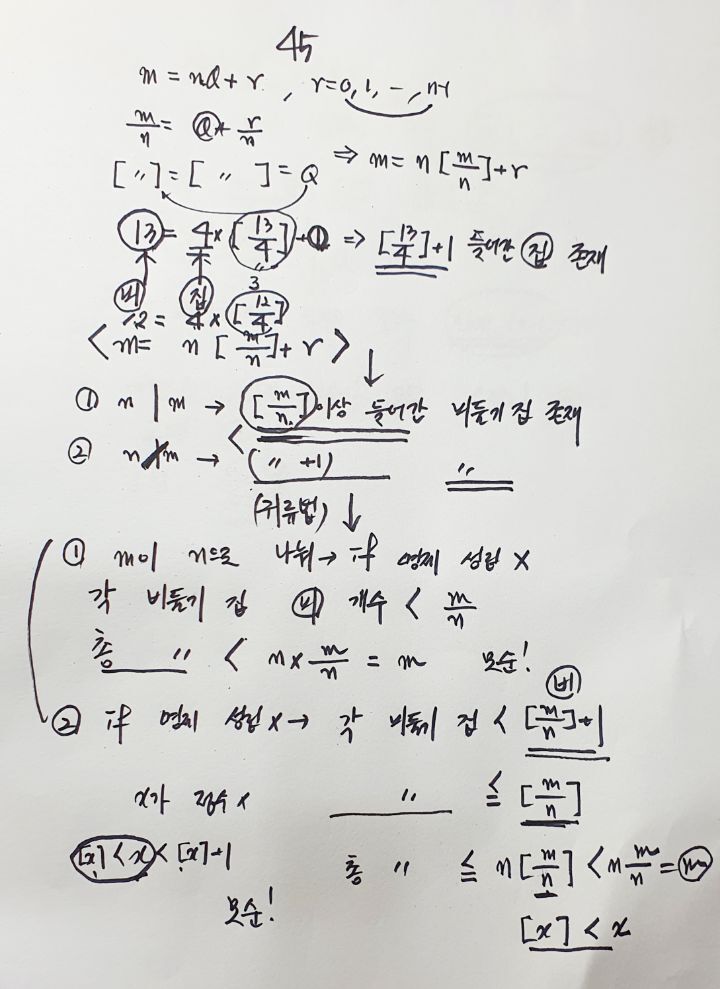 45
m = nQ + r , r=0, 1, -, n-1
m/n = Q + r/n
[ 〃 ] = [ 〃 ] = Q ⇒ m = n [m/n] + r
13 = 4 × [13/4] + 1 ⇒ [13/4]+1 들어간 집 존재
3
비 집
12 = 4 × [12/4]
< m = n [m/n] + r >
① n | m → [m/n] 이상 들어간 비둘기 집 존재
② n ∤ m → ( 〃 +1) 〃
(귀류법) ↓
① m이 n으로 나눠 → if 명제 성립 ×
각 비둘기 집 비 개수 < m/n
총 〃 < n × m/n = m 모순!
② if 명제 성립 × → 각 비둘기 집 비 < [m/n]+1
x가 정수 × 〃 ≦ [m/n]
[x] < x < [x]+1 총 〃 ≦ n[m/n] < n m/n = m
모순! [x] < x